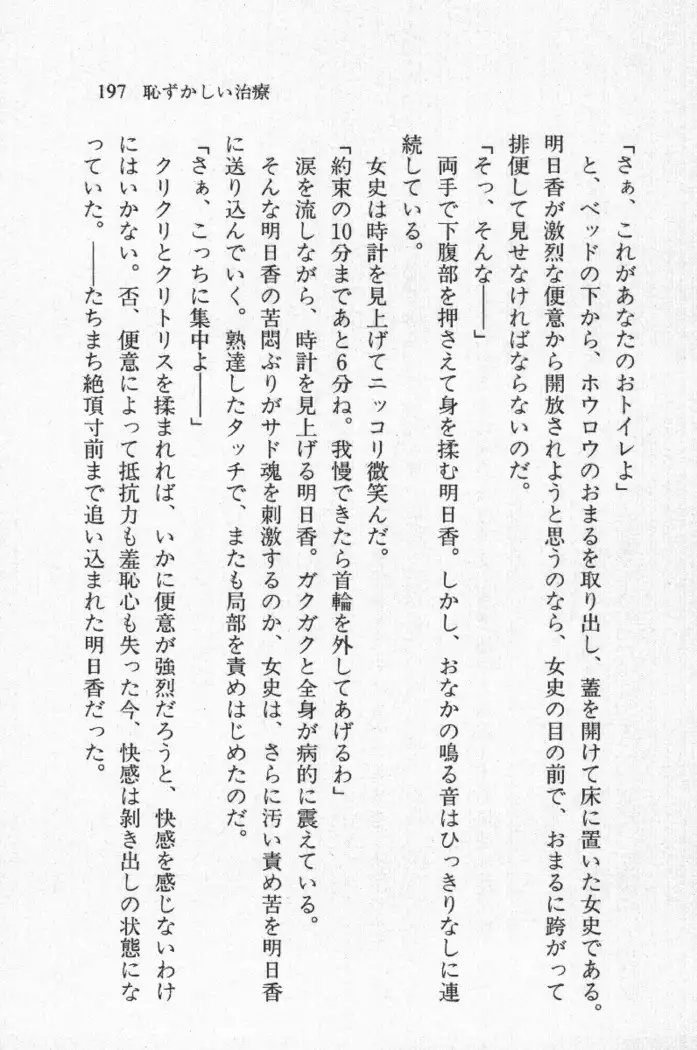 197 恥ずかしい治療
「さぁ、これがあなたのおトイレよ」
と、ベッドの下から、ホウロウのおまるを取り出し、蓋を開けて床に置いた女史である。
明日香が激烈な便意から開放されようと思うのなら、女史の目の前で、おまるに跨がって
排便して見せなければならないのだ。
「そっ、そんな――」
両手で下腹部を押さえて身を揉む明日香。しかし、おなかの鳴る音はひっきりなしに連
続している。
女史は時計を見上げてニッコリ微笑んだ。
「約束の10分まであと6分ね。我慢できたら首輪を外してあげるわ」
涙を流しながら、時計を見上げる明日香。ガクガクと全身が病的に震えている。
そんな明日香の苦悶ぶりがサド魂を刺激するのか、女史は、さらに汚い責め苦を明日香
に送り込んでいく。熟達したタッチで、またも局部を責めはじめたのだ。
「さぁ、こっちに集中よ――」
クリクリとクリトリスを揉まれれば、いかに便意が強烈だろうと、快感を感じないわけ
にはいかない。否、便意によって抵抗力も羞恥心も失った今、快感は剝き出しの状態にな
っていた。――たちまち絶頂寸前まで追い込まれた明日香だった。